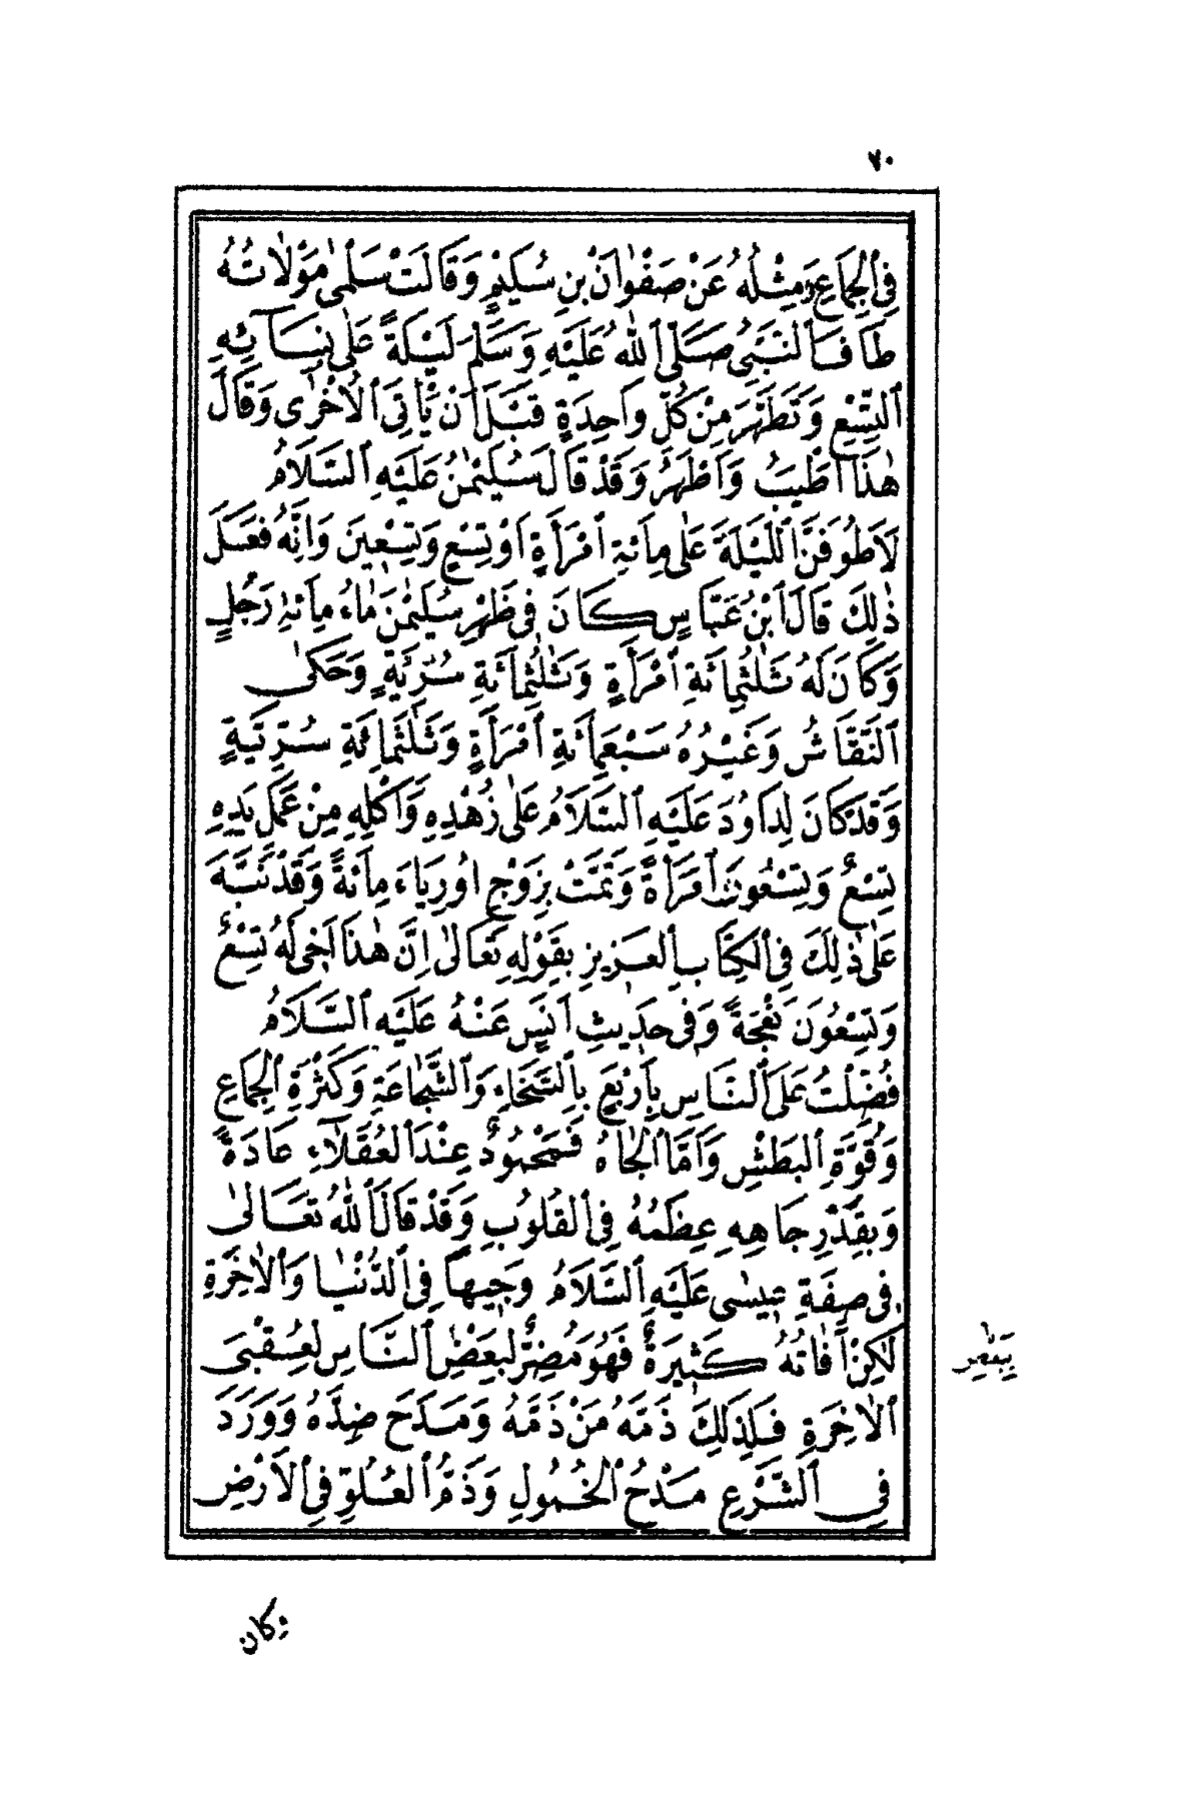 ٧٠
فِي الْجِمَاعِ وَمِثْلُهُ عَنْ صَفْوَانَ بْنِ سُلَيْمٍ وَقَالَتْ سَلْمٰى مَوْلَاتُهُ
طَافَ النَّبِيُّ صَلَّى اللهُ عَلَيْهِ وَسَلَّمَ لَيْلَةً عَلٰى نِسَآئِهِ
التِّسْعِ وَتَطَهَّرَ مِنْ كُلِّ وَاحِدَةٍ قَبْلَ اَنْ يَأْتِيَ الْاُخْرٰى وَقَالَ
هٰذَا اَطْيَبُ وَاَطْهَرُ وَقَدْ قَالَ سُلَيْمٰنُ عَلَيْهِ السَّلَامُ
لَاَطُوفَنَّ اللَّيْلَةَ عَلٰى مِائَةِ امْرَأَةٍ اَوْ تِسْعٍ وَتِسْعِينَ وَاِنَّهُ فَعَلَ
ذٰلِكَ قَالَ ابْنُ عَبَّاسٍ كَانَ فِي ظَهْرِ سُلَيْمٰنَ مَاءُ مِائَةِ رَجُلٍ
وَكَانَ لَهُ ثَلٰثُمِائَةِ امْرَأَةٍ وَثَلٰثُمِائَةِ سُرِّيَّةٍ وَحَكٰى
النَّقَّاشُ وَغَيْرُهُ سَبْعَمِائَةِ امْرَأَةٍ وَثَلٰثَمِائَةِ سُرِّيَّةٍ
وَقَدْ كَانَ لِدَاوُدَ عَلَيْهِ السَّلَامُ عَلٰى زُهْدِهِ وَاَكْلِهِ مِنْ عَمَلِ يَدِهِ
تِسْعٌ وَتِسْعُونَ امْرَأَةً وَتَمَّتْ بِزَوْجِ اُورِيَاءَ مِائَةً وَقَدْ نَبَّهَ
عَلٰى ذٰلِكَ فِي الْكِتَابِ الْعَزِيزِ بِقَوْلِهِ تَعَالٰى اِنَّ هٰذَا اَخِي لَهُ تِسْعٌ
وَتِسْعُونَ نَعْجَةً وَفِي حَدِيثِ اَنَسٍ عَنْهُ عَلَيْهِ السَّلَامُ
فُضِّلْتُ عَلَى النَّاسِ بِاَرْبَعٍ بِالسَّخَاءِ وَالشَّجَاعَةِ وَكَثْرَةِ الْجِمَاعِ
وَقُوَّةِ الْبَطْشِ وَاَمَّا الْجَاهُ فَمَحْمُودٌ عِنْدَ الْعُقَلَآءِ عَادَةً
وَبِقَدْرِ جَاهِهِ عِظَمُهُ فِي الْقُلُوبِ وَقَدْ قَالَ اللهُ تَعَالٰى
فِي صِفَةِ عِيسٰى عَلَيْهِ السَّلَامُ وَجِيهًا فِي الدُّنْيَا وَالْاٰخِرَةِ
لٰكِنْ اٰفَاتُهُ كَثِيرَةٌ فَهُوَ مُضِرٌّ لِبَعْضِ النَّاسِ لِعُقْبَى
الْاٰخِرَةِ فَلِذٰلِكَ ذَمَّهُ مَنْ ذَمَّهُ وَمَدَحَ ضِدَّهُ وَوَرَدَ
فِي الشَّرْعِ مَدْحُ الْخُمُولِ وَذَمُّ الْعُلُوِّ فِي الْاَرْضِ
وَكَانَ